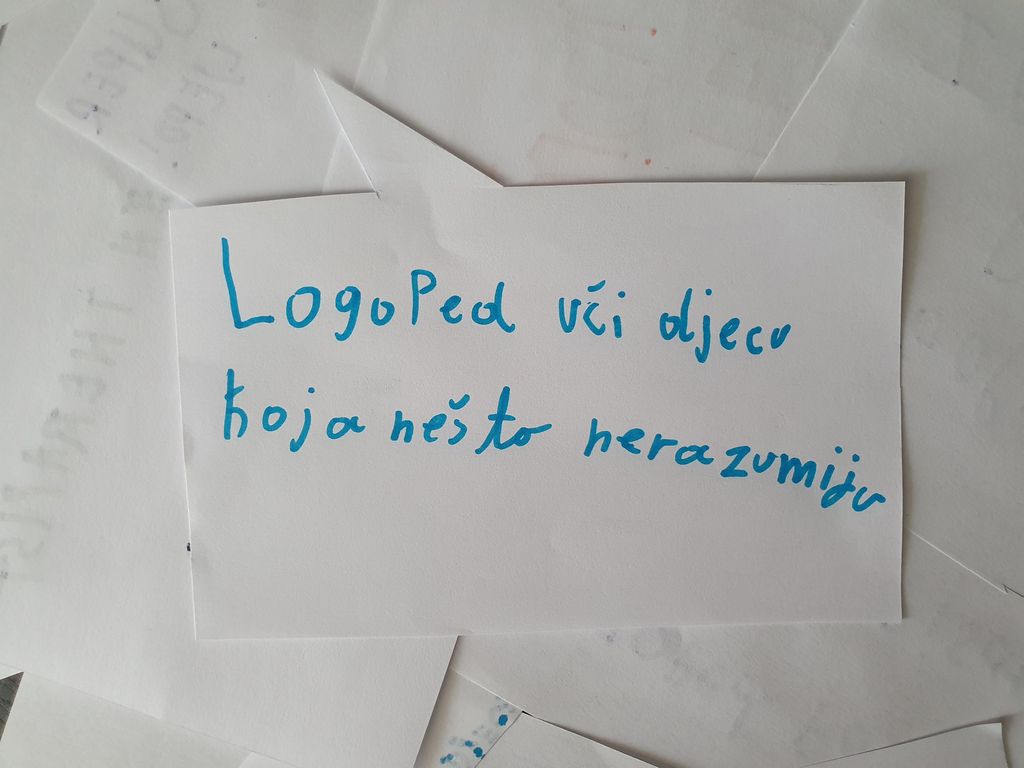 LogoPed uči djecu
koja nešto nerazumiju